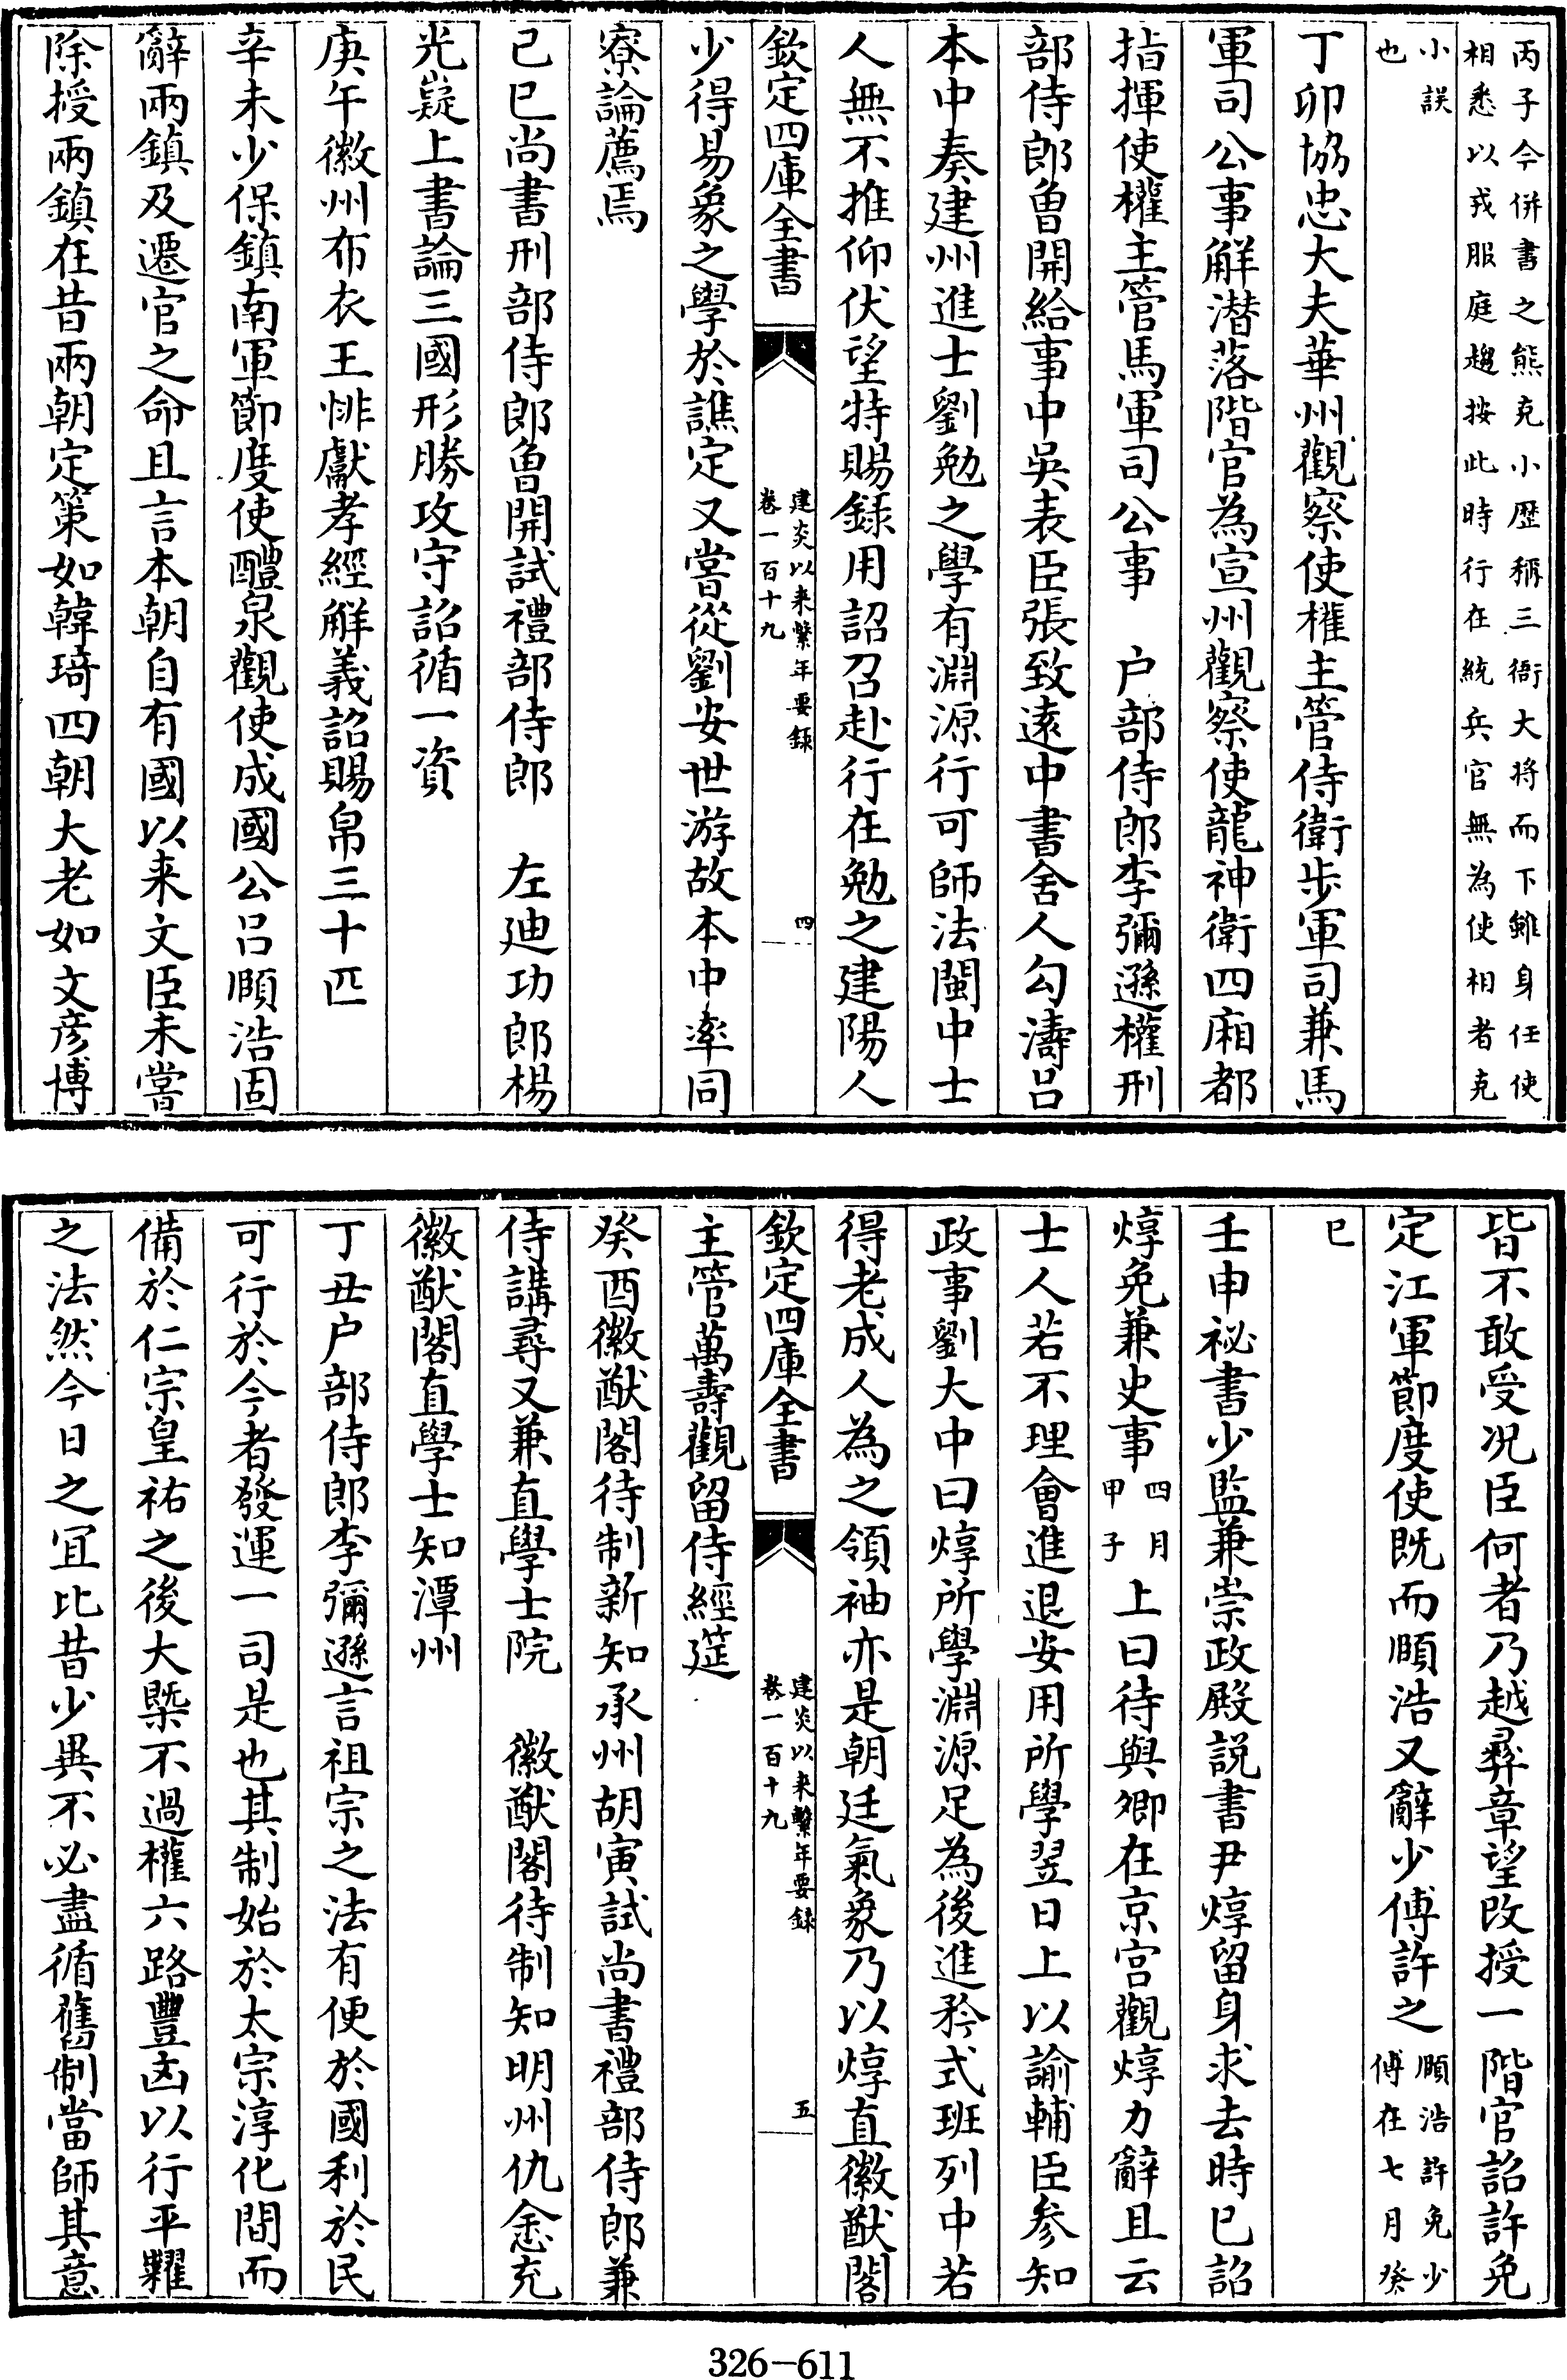 丙子今併書之熊克小歴稱三衙大将而下雖身任使
相悉以戎服庭趨按此時行在統兵官無為使相者克
小誤
也
丁卯協忠大夫華州觀察使權主管侍衛步軍司兼馬
軍司公事解潛落階官為宣州觀察使龍神衛四廂都
指揮使權主管馬軍司公事　户部侍郎李彌遜權刑
部侍郎曾開給事中吳表臣張致遠中書舍人勾濤吕
本中奏建州進士劉勉之學有淵源行可師法閩中士
人無不推仰伏望特賜錄用詔召赴行在勉之建陽人
欽定四庫全書
建炎以来繫年要錄
卷一百十九
四
少得易象之學於譙定又嘗從劉安世游故本中率同
寮論薦焉
己巳尚書刑部侍郎曾開試禮部侍郎　左廸功郎楊
光凝上書論三國形勝攻守詔循一資
庚午徽州布衣王悱獻孝經解義詔賜帛三十匹
辛未少保鎮南軍節度使醴泉觀使成國公吕頤浩固
辭兩鎮及遷官之命且言本朝自有國以来文臣未嘗
除授兩鎮在昔兩朝定策如韓琦四朝大老如文彦博
皆不敢受况臣何者乃越彞章望改授一階官詔許免
定江軍節度使既而頤浩又辭少傅許之
頤浩許免少
傅在七月癸
巳
壬申祕書少監兼崇政殿説書尹焞留身求去時已詔
焞免兼史事
四月
甲子
上曰待與卿在京宫觀焞力辭且云
士人若不理會進退安用所學翌日上以諭輔臣參知
政事劉大中曰焞所學淵源足為後進矜式班列中若
得老成人為之領袖亦是朝廷氣象乃以焞直徽猷閣
欽定四庫全書
建炎以来繫年要錄
卷一百十九
五
主管萬壽觀留侍經筵
癸酉徽猷閣待制新知承州胡寅試尚書禮部侍郎兼
侍講尋又兼直學士院　徽猷閣待制知明州仇悆充
徽猷閣直學士知潭州
丁丑户部侍郎李彌遜言祖宗之法有便於國利於民
可行於今者發運一司是也其制始於太宗淳化間而
備於仁宗皇祐之後大槩不過權六路豐凶以行平糶
之法然今日之宜比昔少異不必盡循舊制當師其意
326-611